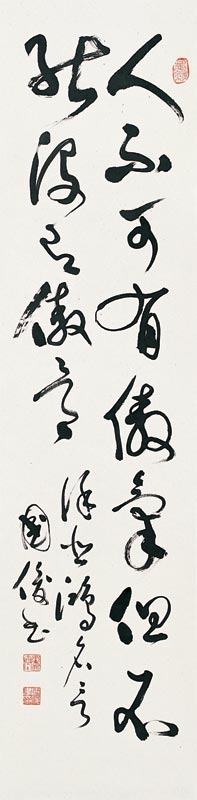 人不可有傲氣但不
能沒有傲骨
徐悲鴻名言
國俊书